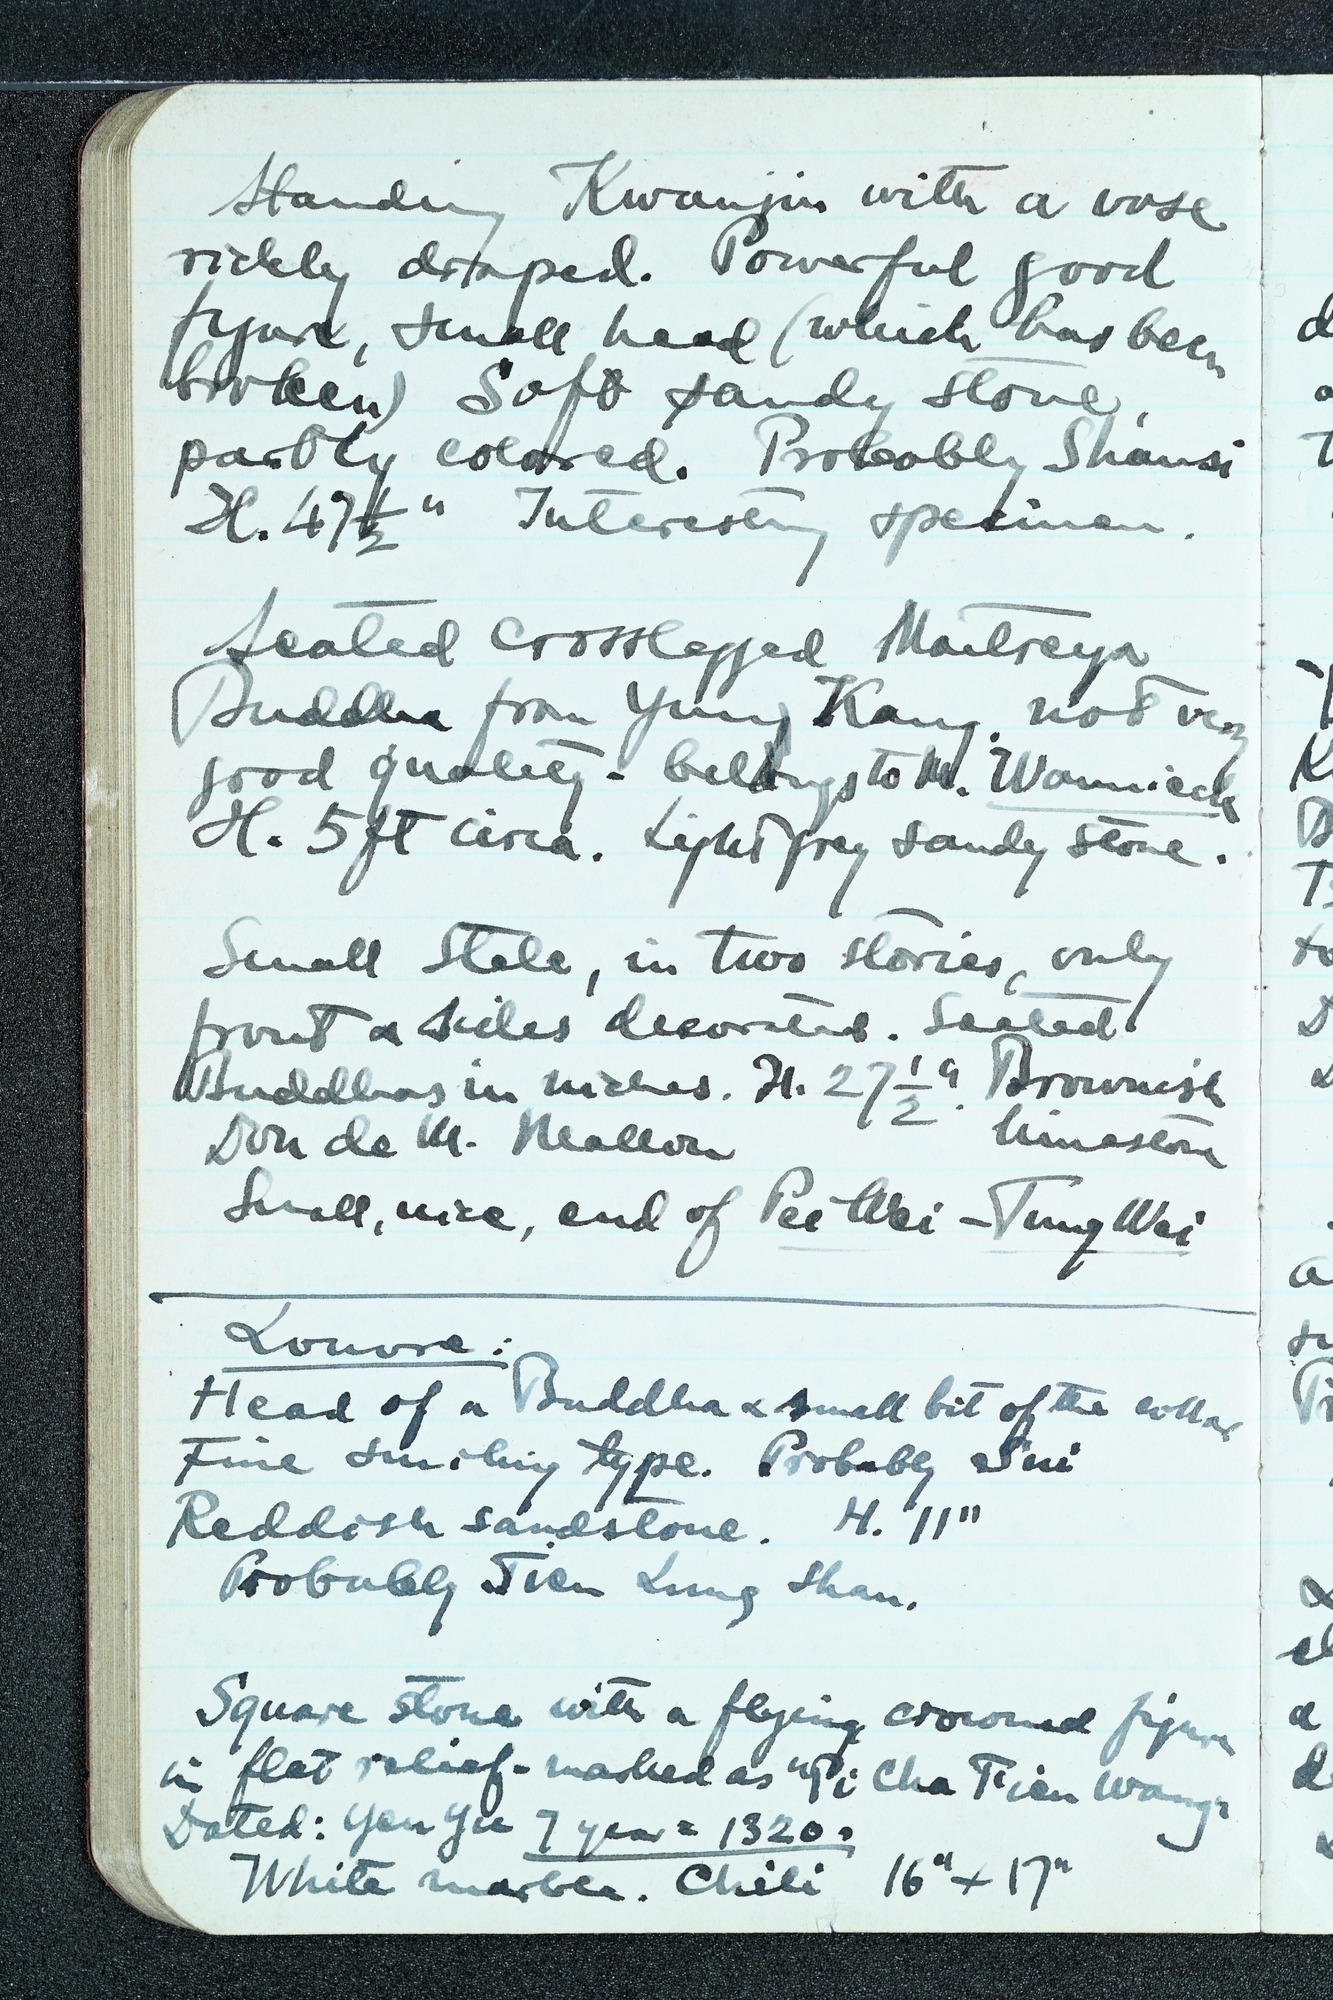 Standing Kwanjin with a vase
richly draped. Powerful good
figure, small head (which has been
broken) Soft sandy stone,
partly colored. Probably Shansi
H. 47 1/2" Interesting specimen.
Seated crosslegged Maitreya
Buddha from Yung Kang. not very
good quality - belongs to M. Wannieck
H. 5 ft circa. Light grey sandy stone.
Small Stele, in two stories, only
front & sides decorated. Seated
Buddhas in niches. H. 27 1/2". Brownish
Don de M. Mallon limestone
Small, nice, end of Pei Wei - Tung Wei
Louvre:
Head of a Buddha & small bit of the collar
Fine smiling type. Probably Sui
Reddish sandstone. H. 11"
Probably Tien Lung Shan.
Square stone with a flying crowned figure
in flat relief - marked as "Ti Cha Tien Wang"
Dated: Yen Yu 7 year = 1320.
White marble. Chili 16" + 17"